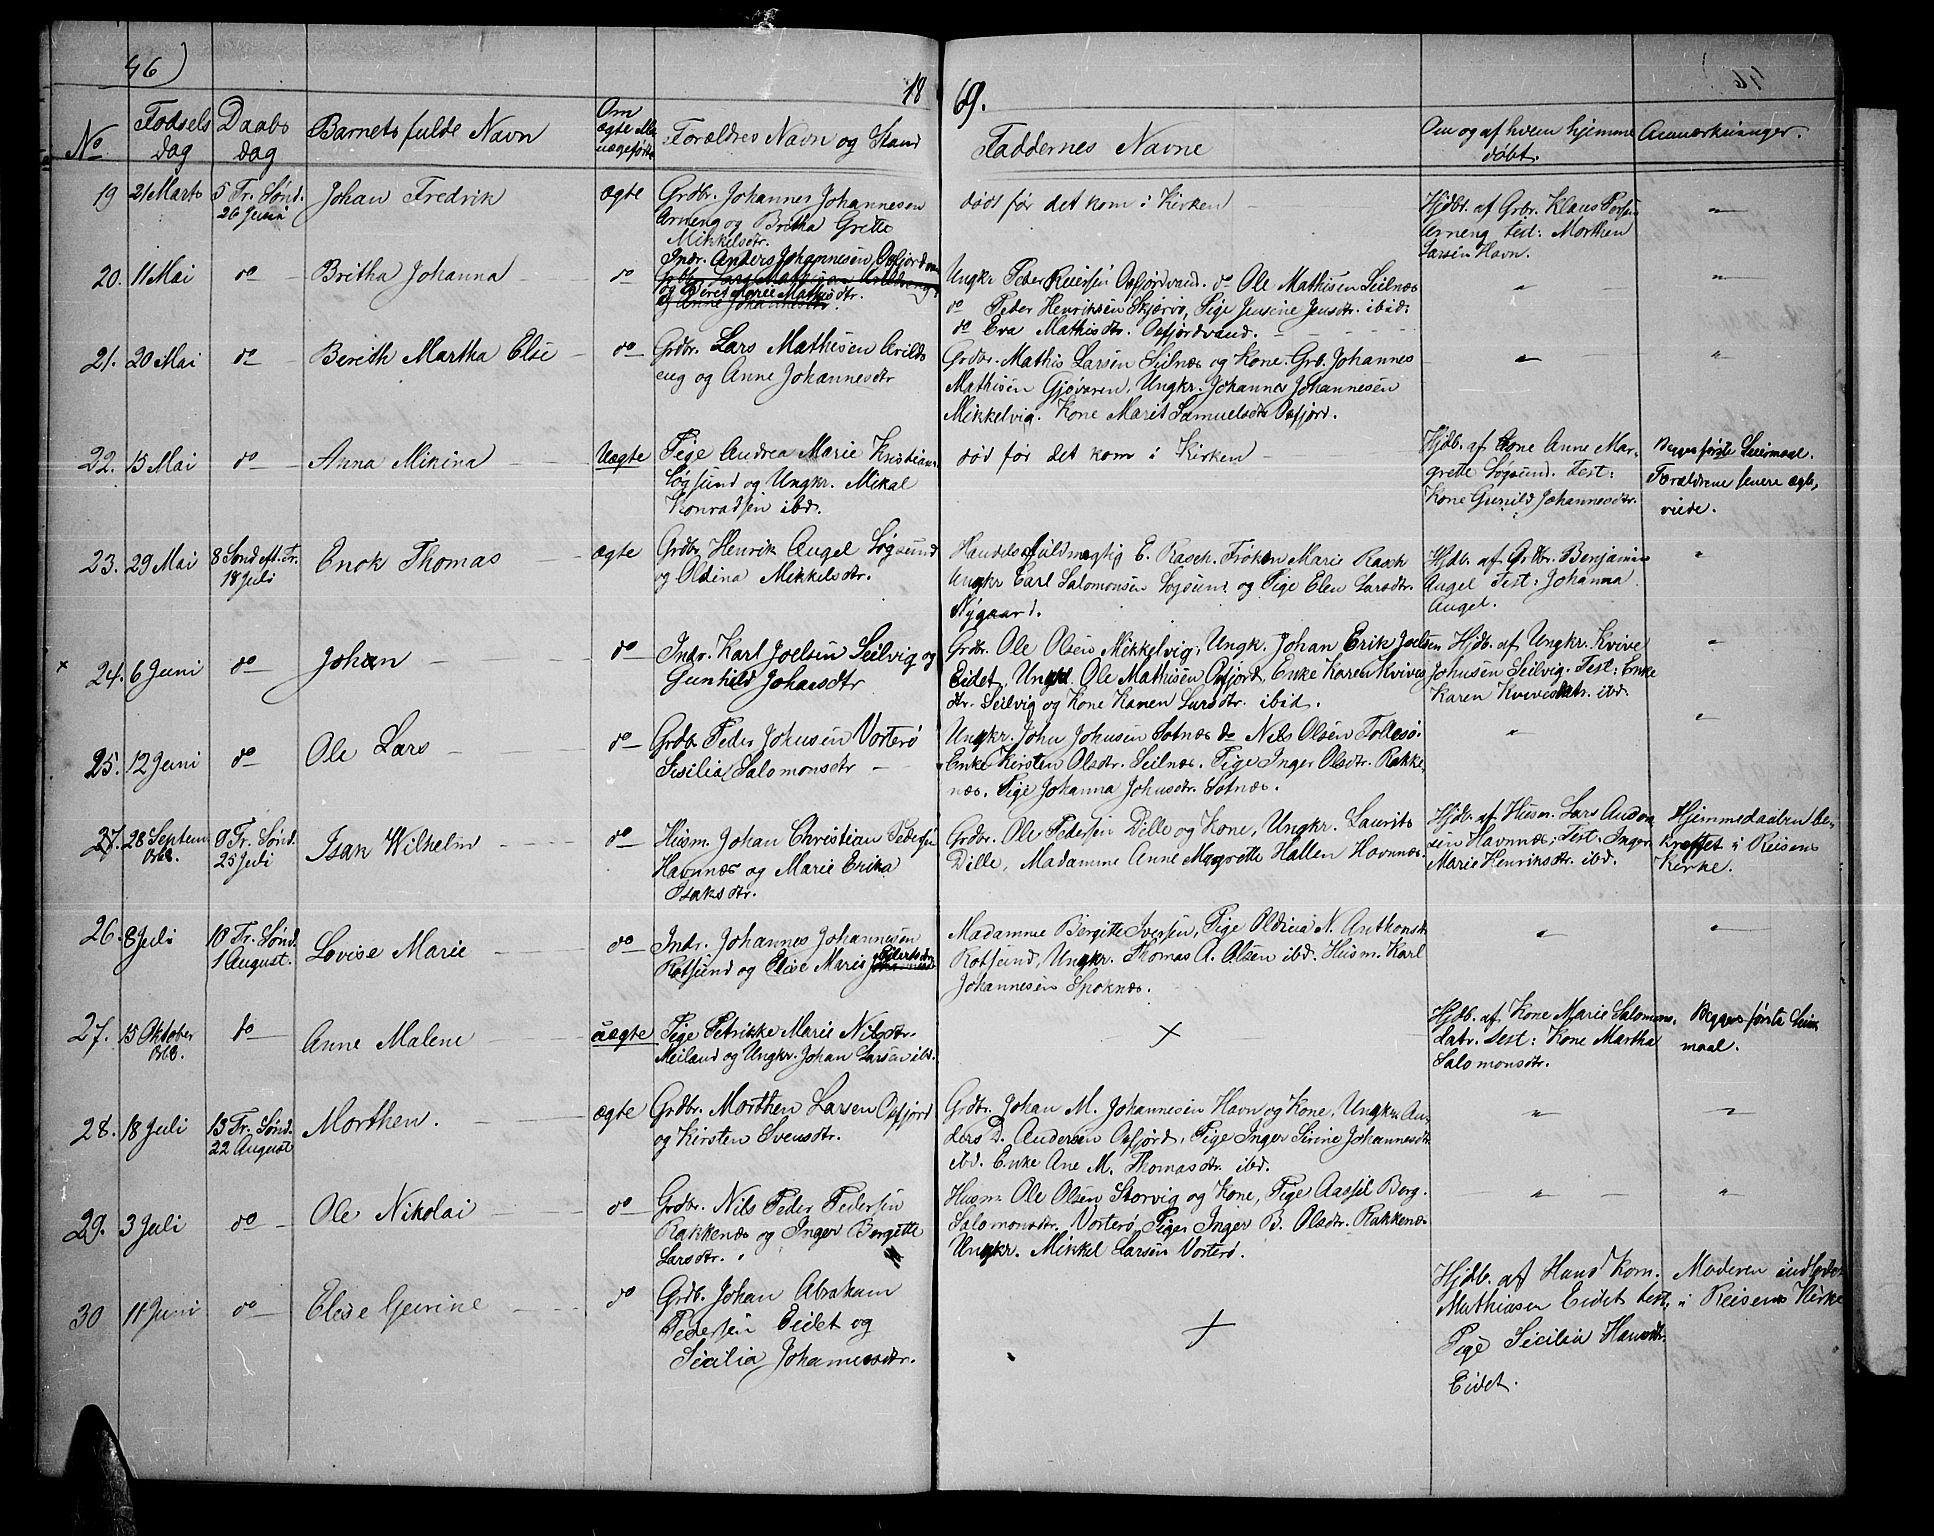 46)
18
69.
No
Fødsels
dag
Daabs
dag
Barnets fulde Navn
Om
ægte eller
uægtefødt
Forældres Navn og Stand
Faddernes Navne
Om og af hvem hjemme
døbt.
Anmærkninger.
19 21 Marts 5 Tr. Sønd. Johan Fredrik ægte Grdbr. Johannes Johannesen
26 Juni
Arneng og Britha Grette
Mikkelsdtr.
dødt før det kom i Kirken —
Hjdbt. af Grbr. Klaus
Arneng Test: Morthen
Larsen Havn.
"
20. 11 Mai do — Britha Johanna — do Indr. Anders Johannesen, Oxfjordvand
Grdbr. Lars Mathisen Arildseng
og Beret Marie Mathisdtr.
og Anne Johannesdtr.
Ungkr Peder Reiersen Oxfjordvand. do Ole Mathisen Seilnæs
do Peder Henriksen Skjervø, Pige Jensine Jensdtr. ibid:
do Eva Mathisdtr. Oxfjordvand.
"
"
21. 20 Mai do — Berith Martha Else — do — Grdbr. Lars Mathisen Arilds
eng og Anne Johannesdtr
Grdbr. Mathis Larsen Seilnæs og Kone. Grb. Johannes
Mathisen Gjøvaren, Ungkr. Johannes Johannesen
Mikkelvig. Kone Marit Samuelsdtr Oxfjord.
"
"
22. 15 Mai do — Anna Mikina — Uægte Pige Andrea Marie Kristians
Løgsund og Ungkr. Mikal
Konradsen ibd.
død før det kom i Kirken —
Hjdb. af Kone Anne Mar-
grette Løgsund. Test:
Kone Gunild Johannesdtr.
Begges første Leiermaal.
Forældrene senere ægte,
viede.
23. 29 Mai 8 Sønd eft. Tr. Enok Thomas — ægte Grdbr. Henrik Angel Løgsund
18 Juli
og Oldina Mikkelsdtr.
Handelsfuldmægtig E. Rasch. Frøken Marie Rasch
Ungkr Carl Salomonsen Løgsund. og Pige Elen Larsdtr.
Nygaard.
Hjdb. af Grdbr. Benjamin
Angel Test: Johanna
Angel.
"
x 24. 6 Juni do — Johan — do Indr. Karl Joelsen Seilvig og
Gunhild Johansdtr
Grdbr. Ole Olsen Mikkelvig, Ungk. Johan Erik Joelsen
Eidet, Ungkr Ole Mathisen Oxfjord, Enke Karen Kvives
dtr. Seilvig og Kone Karen Larsdtr. ibid.
Hjdb. af Ungkr. Kvive
Johnsen Seilvig. Test: Enke
Karen Kvivesdatr. ibd.
"
25. 12 Juni do — Ole Lars — do — Grdbr. Peder Johnsen Vorterø
Sisilia Salomonsdtr —
Ungkr. John Johnsen Sotnæs do Nils Olsen Follesø.
Enke Kirsten Olsdtr. Seilnæs. Pige Inger Olsdtr. Rakke,
næs. Pige Johanna Johnsdtr. Sotnæs.
"
"
27. 28 Septem 9 Tr. Sønd. Isak Wilhelm — do — Husm. Johan Christian Pedersen
1868. 25 Juli
Havnnæs og Marie Erika
Isaksdtr.
Grdbr. Ole Pedersen Dille og Kone, Ungkr. Laurits
Dille, Madamme Anne Magrette Hallen Havnnæs.
Hjdb. af Husm. Lars Anders
sen Havnnæs, Test: Inger
Marie Henriksdtr. ibd.
Hjemmedaaben be-
kræftet i Reisens
Kirke.
26. 8 Juli 10 Tr. Sønd. Lovise Marie — do — Indr. Johannes Johannesen
1 August.
Rotsund og Elise Marie Eilertsdtr
Madamme Bergitte Iversen, Pige Oldina N. Anthonsdt
Rotsund, Ungkr. Thomas A. Olsen ibd. Husm. Karl
Johannesen Spoknæs.
"
"
27. 15 Oktober do — Anne Malene — uægte Pige Petrikke Marie Nilsdtr.
1868.
Meiland og Ungkr. Johan Larsen ibd.
x
Hjdb. af Kone Marie Salomons.
datr. Test: Kone Martha
Salomonsdtr.
Begges første Leier
maal.
28. 18 Juli 13 Tr. Sønd. Morthen. — ægte Grdbr. Morthen Larsen Oxfjord
22 August
og Kirsten Svensdtr.
Grdbr. Johan M. Johannesen Havn og Kone, Ungkr. An-
ders D. Andersen Oxfjord, Pige Inger Sirine Johannesdtr
ibd. Enke Ane M. Thomasdtr. ibd.
"
"
29. 3 Juli do — Ole Nikolai — do Grdbr. Nils Peder Pedersen
Rakkenæs og Inger Bergitte
Larsdtr.
Husm. Ole Olsen Storvig og Kone, Pige Aassil Berg.
Salomonsdtr. Vorterø, Pige Inger B. Olsdtr. Rakkenæs
Ungkr. Mikkel Larsen Vorterø.
"
"
30 11 Juni do — Elese Gurine — do Grdb. Johan Abraham
Pedersen Eidet og
Sicilia Johannesdtr.
x
Hjdb. af Hans Korn.
Mathiasen Eidet test,
Pige Sicilia Hansdtr.
Eidet.
Moderen indledet
i Reisens Kirke